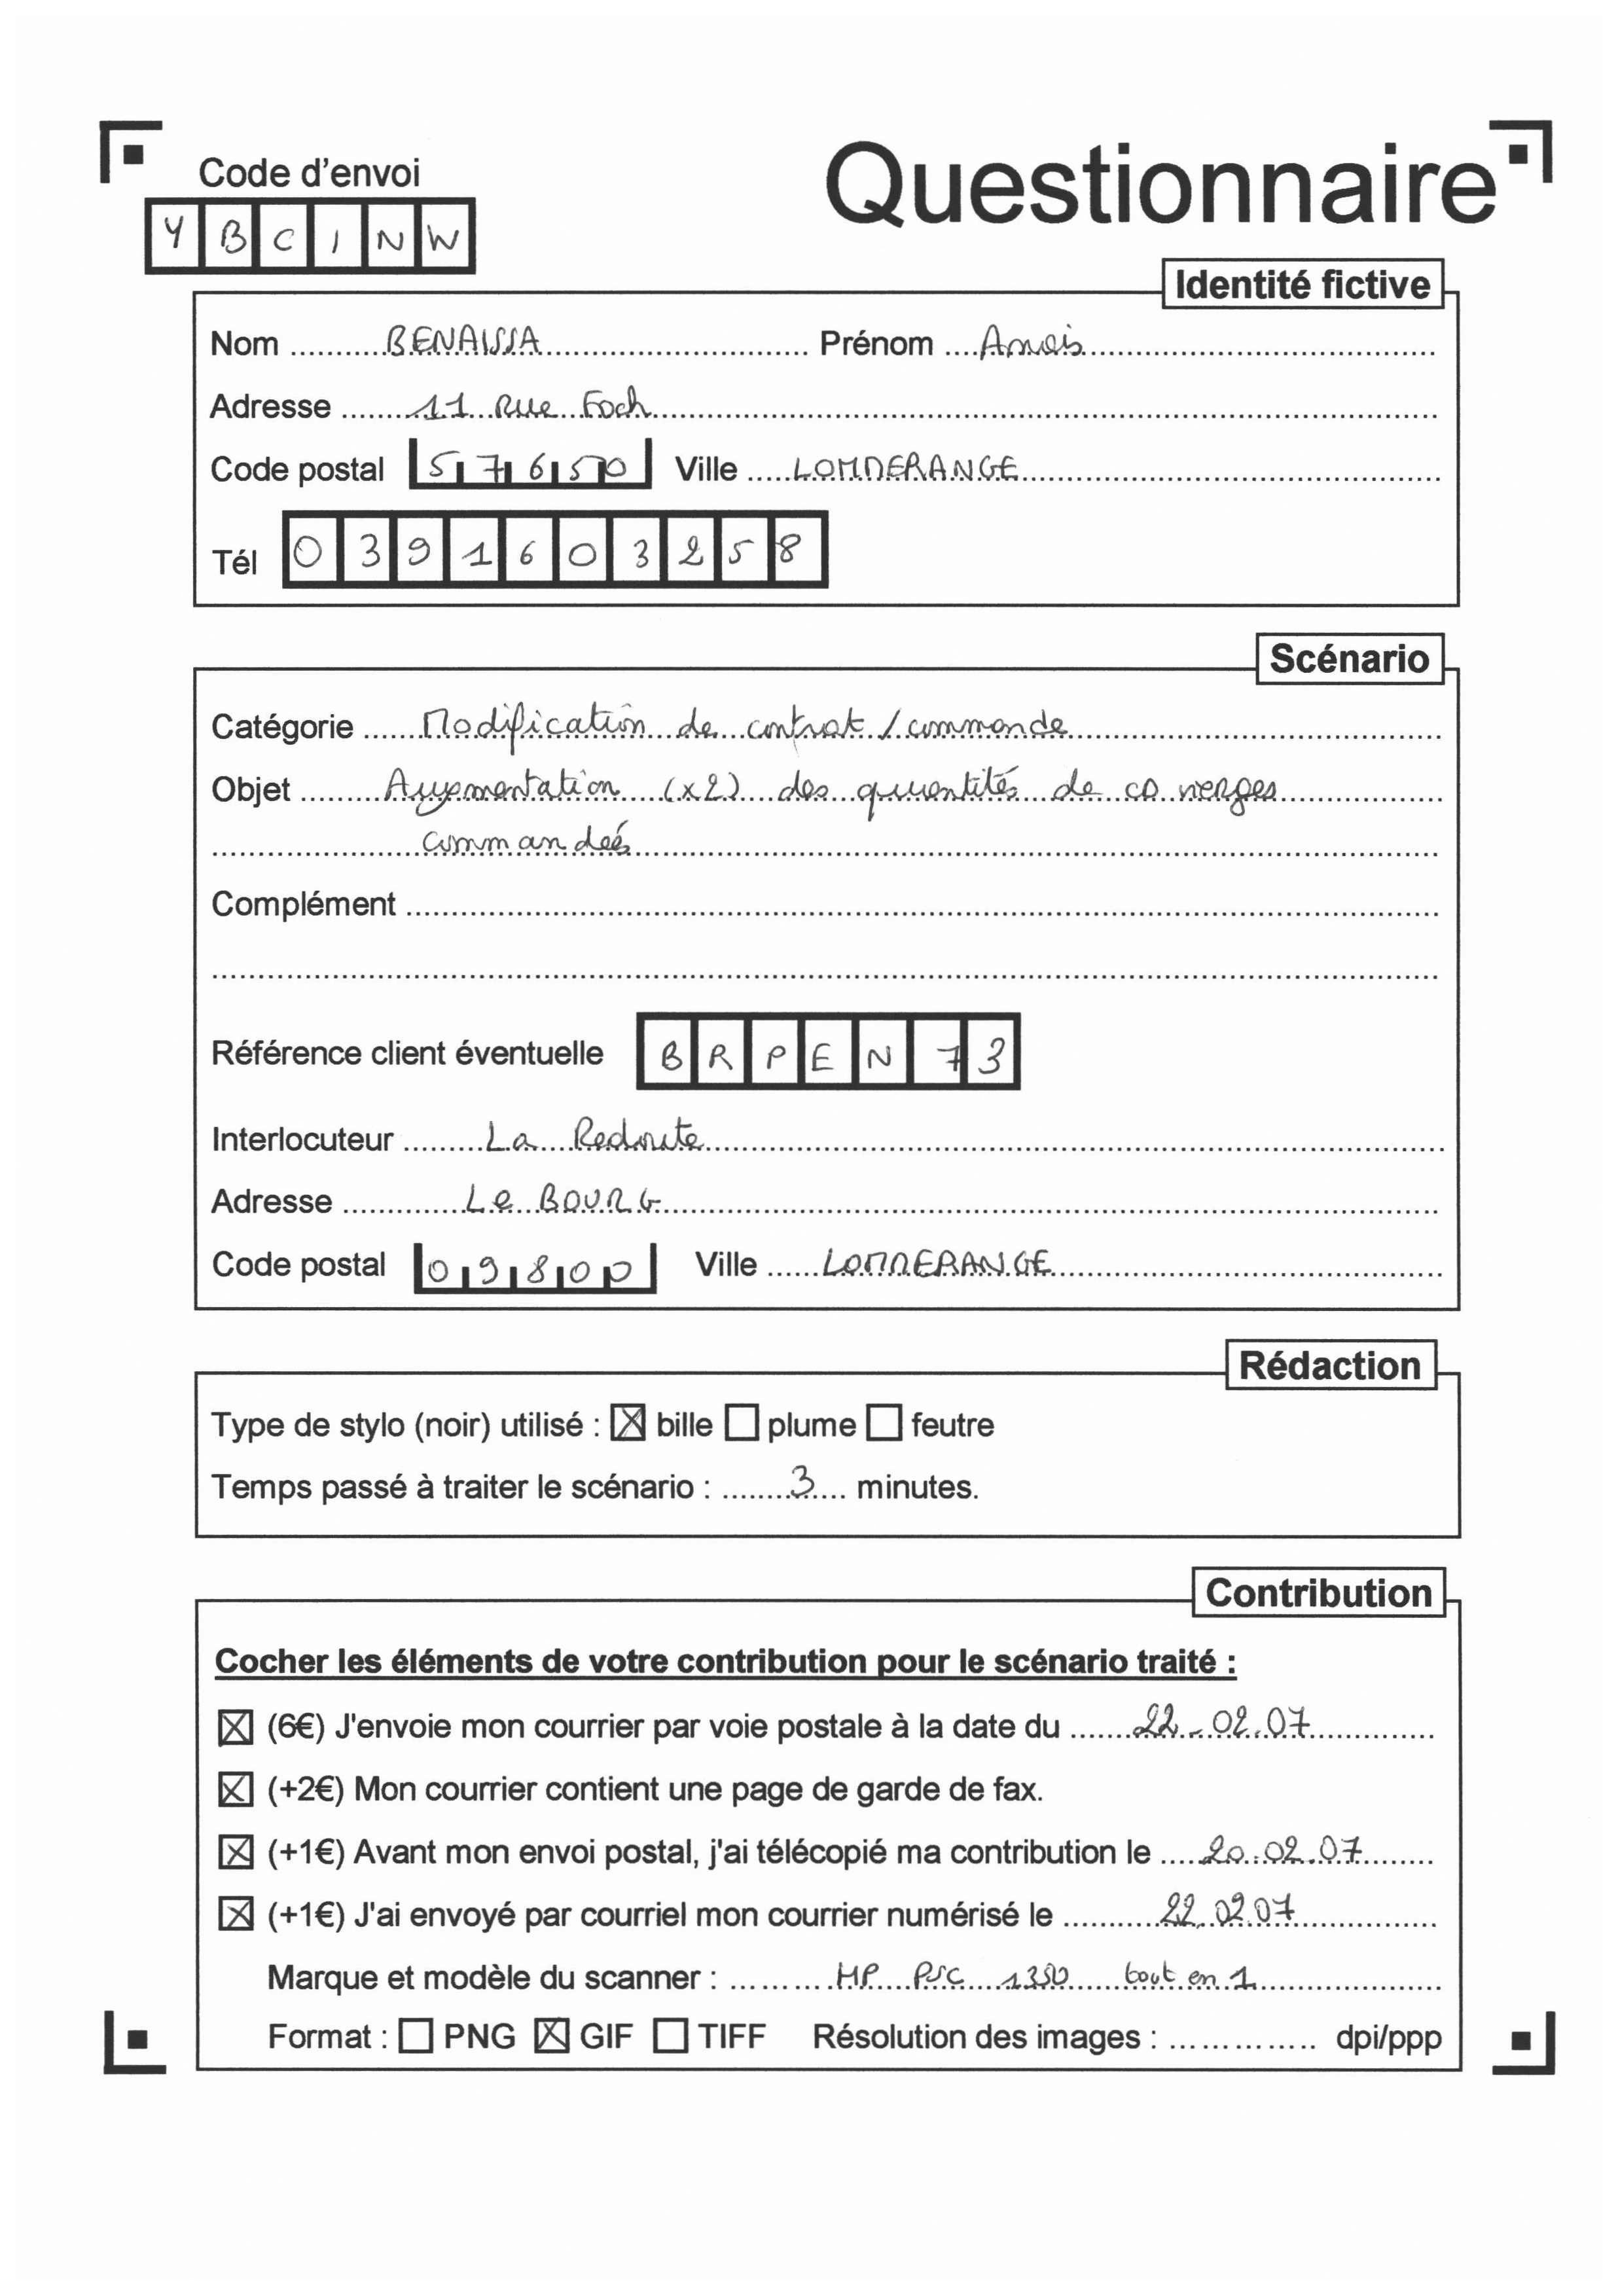 Code d'envoi
Questionnaire
Y B C I N W
Identité fictive
Nom BENAISSA Prénom Anais
Adresse 11 Rue Foch
Code postal 57650 Ville LOMMERANGE
Tél 0391603258
Scénario
Catégorie Modification de contrat / commande
Objet Augmentation (x2) des quantités de CD vierges
commandeés
Complément
Référence client éventuelle BRPEN73
Interlocuteur La Redoute
Adresse Le BOURG
Code postal 09800 Ville LOMMERANGE
Rédaction
Type de stylo (noir) utilisé : ☒ bille ☐ plume ☐ feutre
Temps passé à traiter le scénario : 3 minutes.
Contribution
Cocher les éléments de votre contribution pour le scénario traité :
☒ (6€) J'envoie mon courrier par voie postale à la date du 22-02.07
☒ (+2€) Mon courrier contient une page de garde de fax.
☒ (+1€) Avant mon envoi postal, j'ai télécopié ma contribution le 20.02.07
☒ (+1€) J'ai envoyé par courriel mon courrier numérisé le 22.02.07
Marque et modèle du scanner : HP PSC 1350 tout en 1
Format : ☐ PNG ☒ GIF ☐ TIFF Résolution des images : .............. dpi/ppp